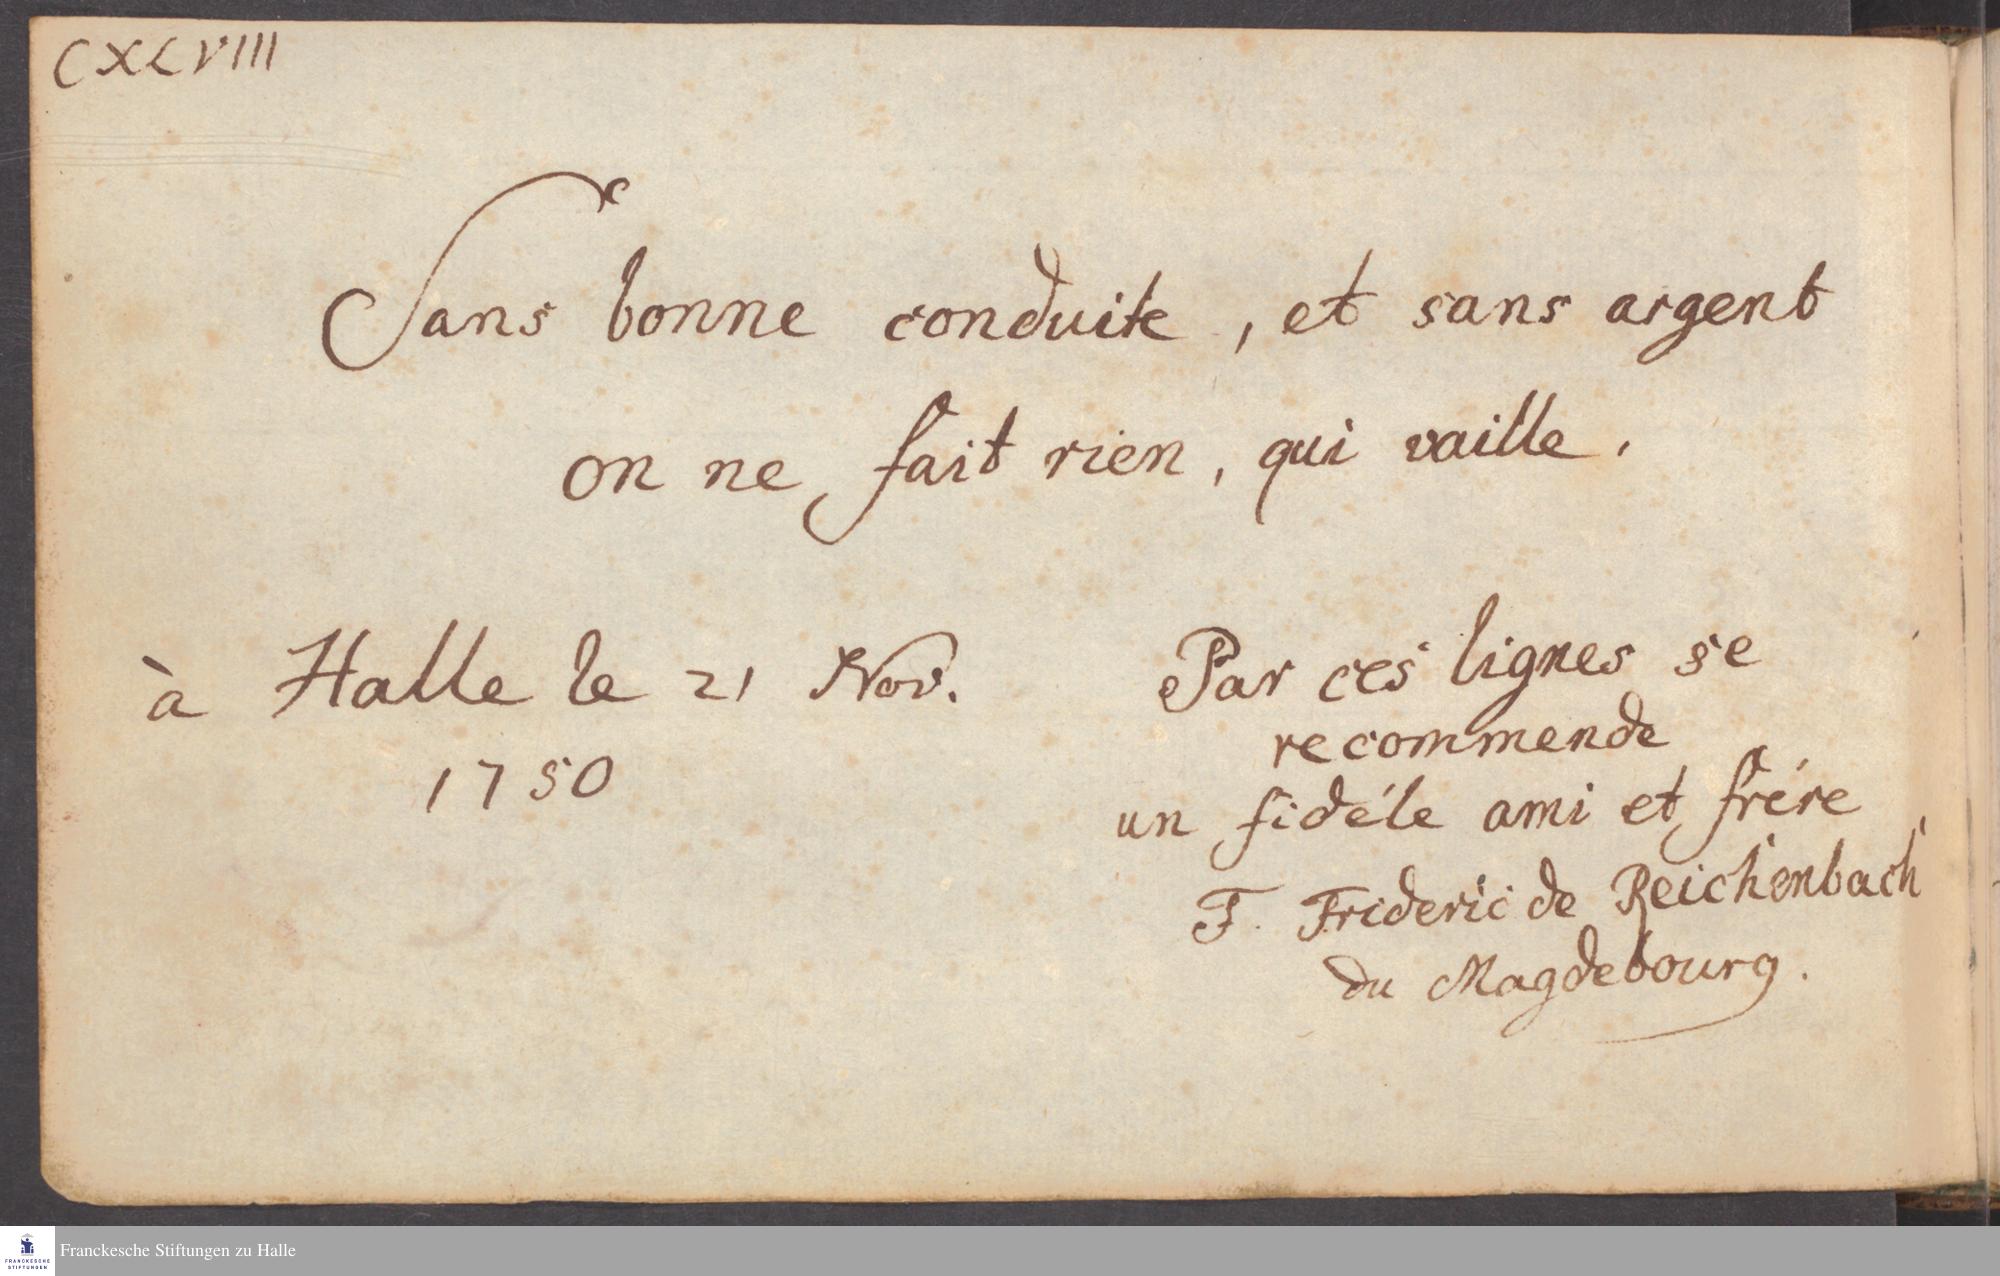 CXLVIII
Sans bonne conduite, et sans argent
on ne fait rien, qui vaille.
à Halle le 21 Nov.
1750
Par ces lignes se
recommende
un fidéle ami et frére
F. Frideric de Reichenbach
du Magdebourg.
Franckesche Stiftungen zu Halle
FRANCKESCHE
STIFTUNGEN